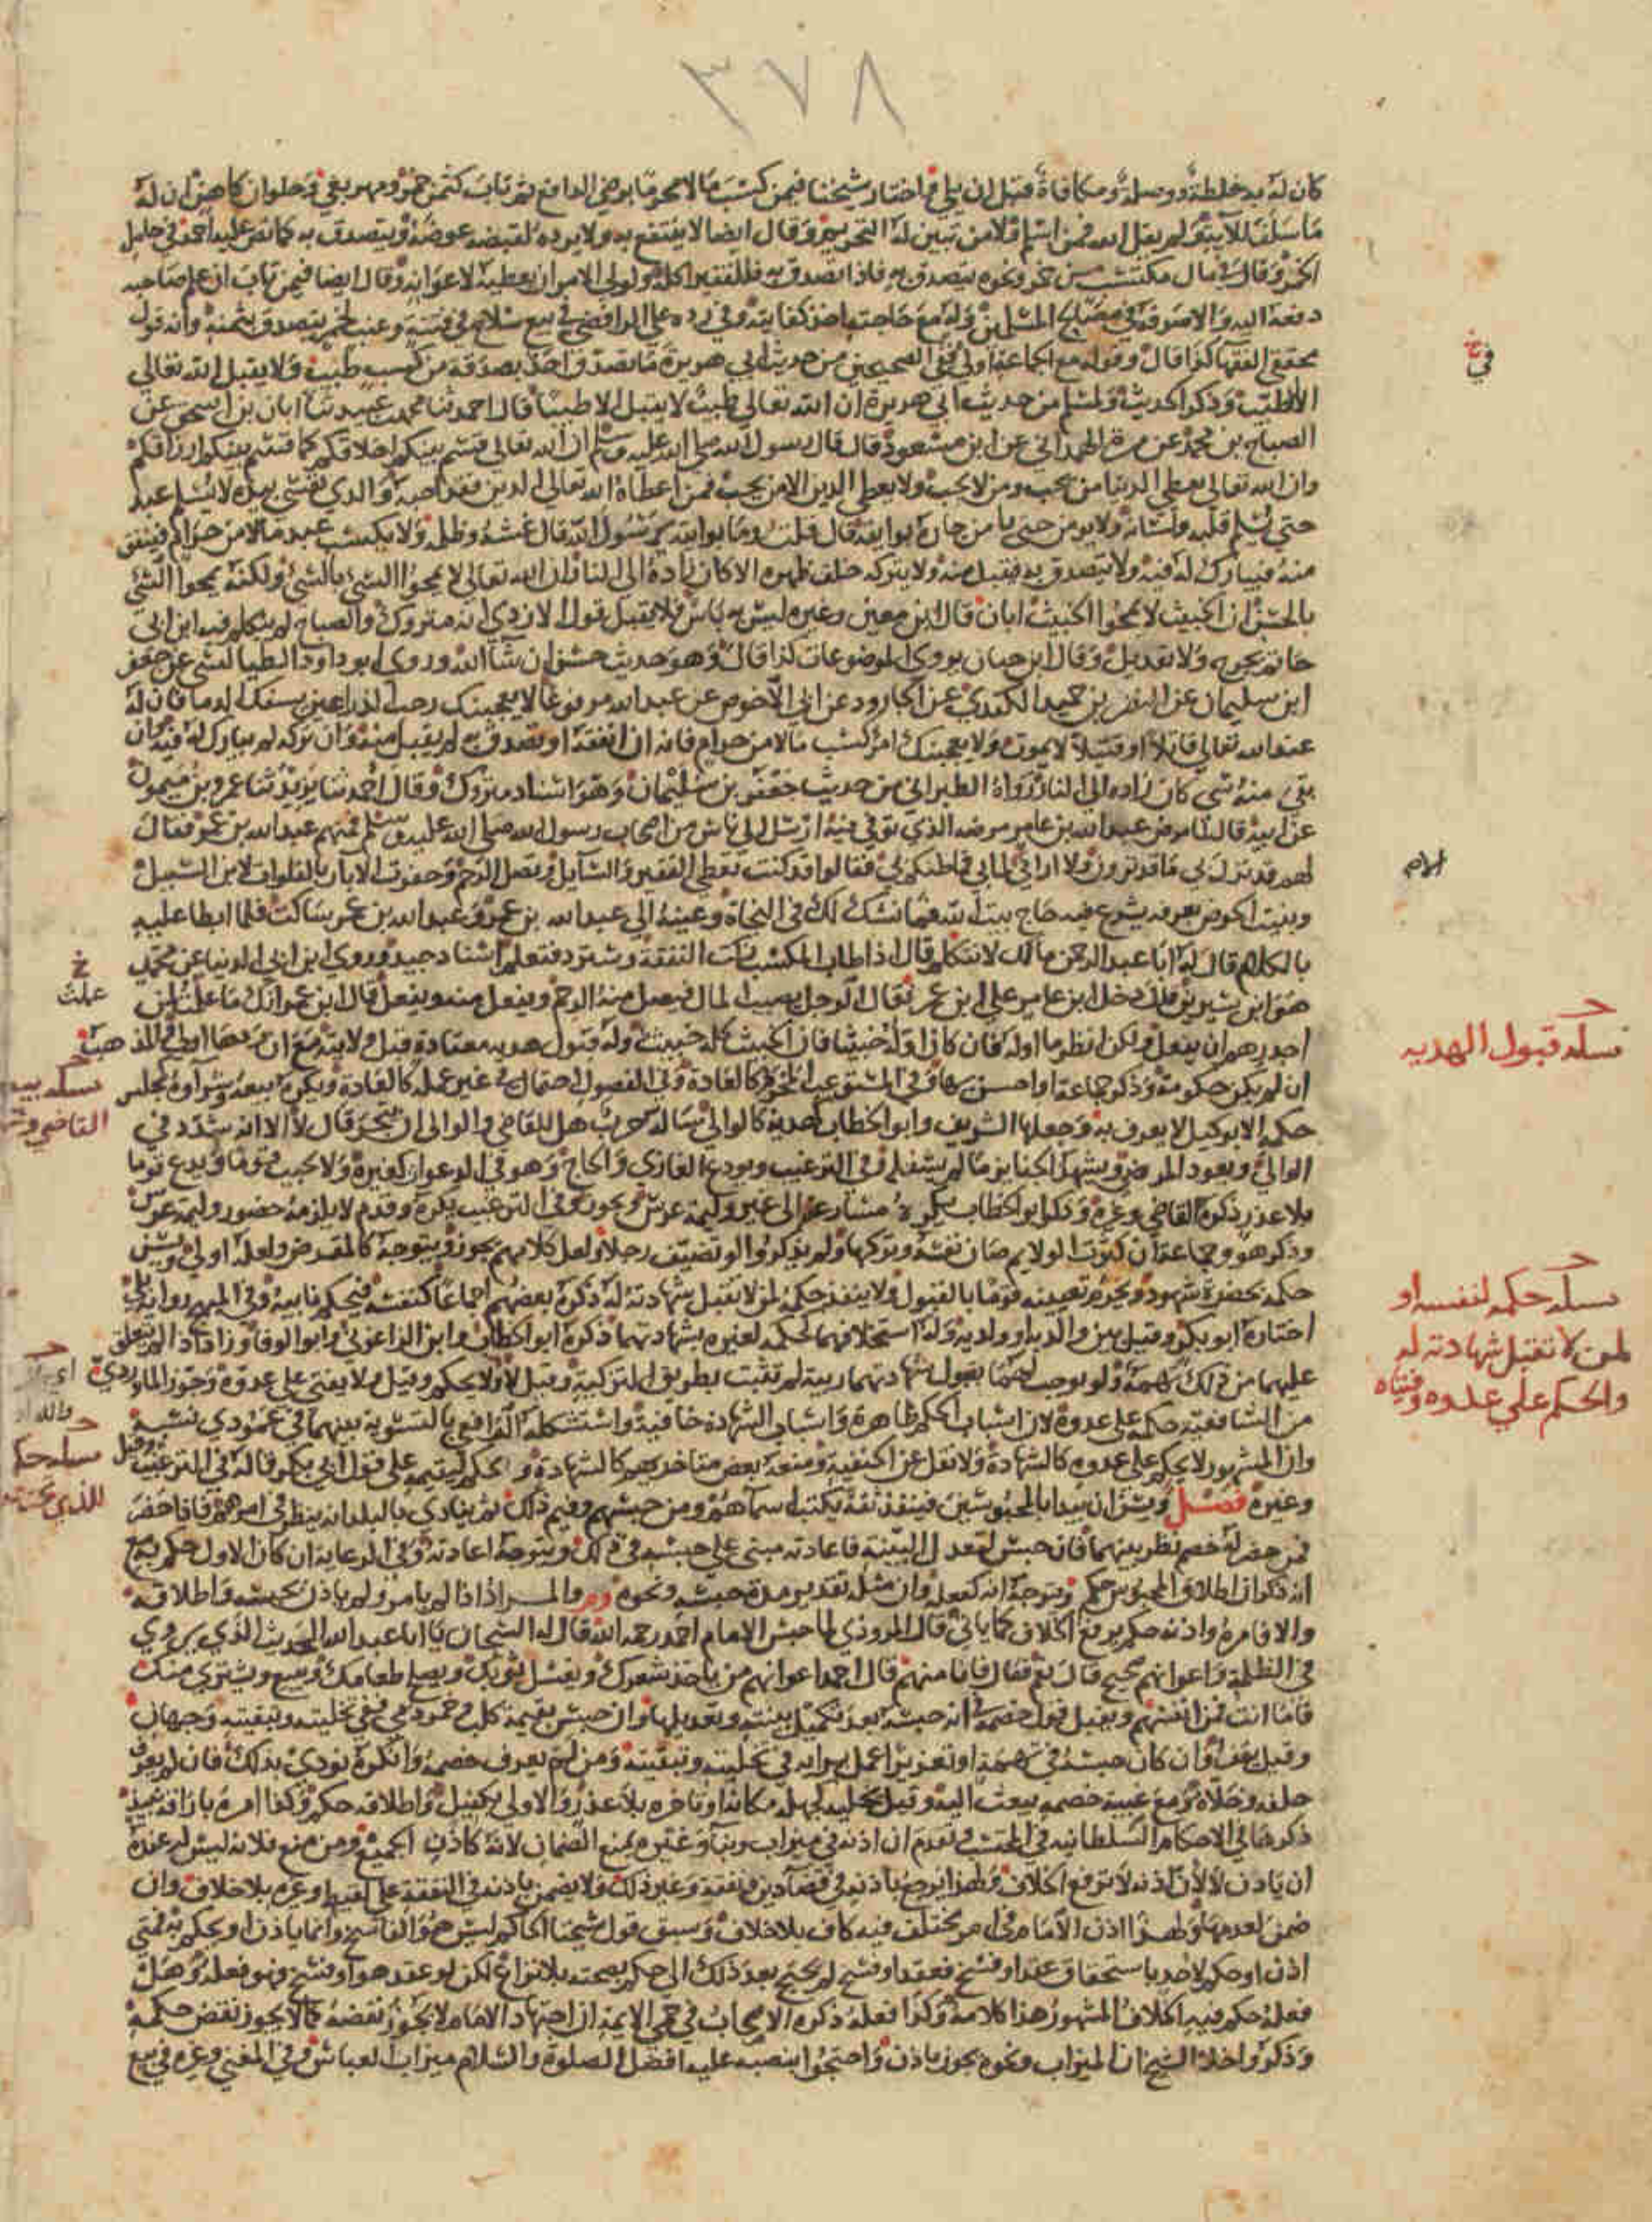 ٣٧٨
كان له به خلطة ووصلة ومكافاة قبل ان يلي واختار شيخنا فيمن كسب مالا محرما برضى الدافع ثم تاب كثمن خمر ومهر بغي وحلوان كاهن ان له
ما سلف للآية ولم يقل الله فمن اسلم ولا من تبين له التحريم وقال ايضا لا ينتفع به ولا يرده لقبضه عوضه ويتصدق به كما نص عليه احمد في حامل
الخمر وقال في مال مكتسب من خمر ونحوه يتصدق به فاذا تصدق به فللفقير اكله ولولي الامر ان يعطيه لاعوانه وقال ايضا فيمن تاب ان علم صاحبه
دفعه اليه والا صرفه في مصالح المسلمين وله مع حاجته اخذ كفايته وفي رده على الرافضي في بيع سلاح في فتنة وعنب لخمر يتصدق بثمنه وانه قول
محققي الفقها كذا قال وقوله مع الجماعة اولى وفي الصحيحين من حديث ابي هريرة ما تصدق احد بصدقة من كسب طيب ولا يقبل الله تعالى
الا الطيب وذكر الحديث ولمسلم من حديث ابي هريرة ان الله تعالى طيب لا يقبل الا طيبا قال احمد ثنا محمد بن عبيد ثنا ابان بن اسحق عن
الصباح بن محمد عن مرة الهمداني عن ابن مسعود قال قال رسول الله صلى الله عليه وسلم ان الله تعالى قسم بينكم اخلاقكم كما قسم بينكم ارزاقكم
وان الله تعالى يعطي الدنيا من يحب ومن لا يحب ولا يعطي الدين الا من يحب فمن اعطاه الله تعالى الدين فقد احبه والذي نفسي بيده لا يسلم عبد
حتى يسلم قلبه ولسانه ولا يؤمن حتى يامن جاره بوايقه قال قلت وما بوايقه يا رسول الله قال غشه وظلمه ولا يكسب عبد مالا من حرام فينفق
منه فيبارك له فيه ولا يتصدق به فيقبل منه ولا يتركه خلف ظهره الا كان زاده الى النار ان الله تعالى لا يمحوا السئ بالسئ ولكنه يمحوا السئ
بالحسن ان الخبيث لا يمحوا الخبيث ابان قال ابن معين وغيره ليس به باس فلا يقبل قول الازدي انه متروك والصباح لم يتكلم فيه ابن ابي
حاتم بجرح ولا تعديل وقال ابن حبان يروي الموضوعات كذا قال وهو حديث حسن ان شا الله وروى ابو داود الطيالسي عن جعفر
ابن سليمان عن النضر بن حميد الكندي عن الجارود عن ابي الاحوص عن عبد الله مرفوعا لا يعجبنك رحب الذراعين يسفك الدما فان له
عند الله تعالى قاتلا او قتيلا لا يموت ولا يعجبنك امرؤ كسب مالا من حرام فانه ان انفقه او تصدق به لم يقبل منه وان تركه لم يبارك له فيه وان
بقي منه شي كان زاده الى النار رواه الطبراني من حديث جعفر بن سليمان وهو اسناد متروك وقال احمد ثنا يزيد ثنا عمرو بن ميمون
عن ابيه قال لما مرض عبد الله بن عامر مرضه الذي توفي فيه ارسل الى ناس من اصحاب رسول الله صلى الله عليه وسلم منهم عبد الله بن عمر فقال
لهم قد نزل بي ما قد ترون ولا اراني الا لمابي فما ظنكم بي فقالوا قد كنت تعطي الفقير والسايل وتصل الرحم وحفرت الابار بالفلوات لابن السبيل
وبنيت الحوض بعرفة يشرع فيه حاج بيت الله فما نشك لك في النجاة وعينه الى عبد الله بن عمر وعبد الله بن عمر ساكت فلما ابطا عليه
بالكلام قال له ابا عبد الرحمن مالك لا تتكلم قال اذا طاب المكسب زكت النفقة وسترد فتعلم اسناد جيد وروى ابن ابي الدنيا عن محمد
هو ابن سيرين قال دخل ابن عامر على ابن عمر فقال الرجل يصيب المال فيصل منه الرحم ويفعل منه ويفعل قال ابن عمر انك ما علمت لمن
اجدرهم ان يفعل ولكن انظر ما اوله فان كان اوله خبيثا فان الخبيث كله خبيث وله قبول هدية معتادة قبل ولايته مع ان ردها اولى والمذهب
ان لم يكن حكومة وذكر جماعة او احس بها وفي المستوعب المحرم كالعادة وفي الفصول احتمال في غير عمله كالعادة ويكره بيعه وشراوه بمجلس
حكمه الا بوكيل لا يعرف به وجعلها الشريف وابو الخطاب هدية كالوالي سأله حرب هل للقاضي والوالي ان يتجر قال لا الا انه شدد في
الوالي ويعود المرضى ويشهد الجنايز ما لم يشغله وفي الترغيب ويودع الغازي والحاج وهو في الدعوات كغيره ولا يجيب قوما ويدع قوما
بلا عذر ذكره القاضي وغيره وذكر ابو الخطاب يكره مسارعته الى غير وليمة عرس ويجوز وفي الترغيب يكره وقدم لا يلزمه حضور وليمة عرس
وذكر هو وجماعة ان كثرت الولايم صان نفسه وتركها ولم يذكروا لو تضيف رجلا ولعل كلامهم يجوز ويتوجه كالمقرض ولعله اولى ويسن
حكمه بحضرة شهود ويحرم تعيينه قوما بالقبول ولا ينفذ حكمه لمن لا تقبل شهادته له ذكره بعضهم اجماعا كنفسه فيحكم نايبه وفي المبهج رواية بلى
اختاره ابو بكر وقيل بين والديه او ولديه وله استخلافهما كحكمه لغيره بشهادتهما ذكره ابو الخطاب وابن الزاغوني وابو الوفا وزاد اذا لم يتعلق
عليهما من ذلك تهمة ولم يوجب لهما بقبول شهادتهما ريبة لم تثبت بطريق التزكية وقيل لا ولا يحكم وقيل ولا يفتي على عدوه وجوز الماوردي
من الشافعية حكمه على عدوه لان اسباب الحكم ظاهرة واسباب الشهادة خافية واستشكله الرافعي بالتسوية بينهما في عمودي نسبه
وان المشهور لا يحكم على عدوه كالشهادة ولا نقل عن الحنفية ومنعه بعض متاخريهم كالشهادة وحكم ليتيمه على قول ابي بكر قاله في الترغيب وقيل
وغيره فصل ويسن ان يبدا بالمحبوسين فينفذ ثقة يكتب اسماهم ومن حبسهم وفيم ذلك ثم ينادي بالبلد انه ينظر في امرهم فاذا حضر
فمن حضر له خصم نظر بينهما فان حبس لتعدل البينة فاعادته مبني على حبسه في ذلك ويتوجه اعادته وفي الرعاية ان كان الاول حكم به مع
انه ذكر ان اطلاق المحبوس حكم ويتوجه انه كفعله وان مثله تقدير مدة حبسه ونحوه والمراد اذا لم يامر ولم ياذن بحبسه واطلاقه
والا فامره واذنه حكم يرفع الخلاف كما ياتي قال المروذي لما حبس الامام احمد رحمه الله قال له السجان يا ابا عبد الله الحديث الذي يروي
في الظلمة واعوانهم صحيح قال نعم فقال فانا منهم قال احمد اعوانهم من ياخذ شعرك ويغسل ثوبك ويصلح طعامك ويبيع ويشتري منك
فاما انت فمن انفسهم ويقبل قول خصمه في انه حبسه بعد تكميل بينته وتعديلها وان حبس بقيمة كلب وخمر ذمي ففي تخليته وتبقيته وجهان
وقيل يقف وان كان حبسه في تهمة او تعزير اعمل برايه في تخليته وتبقيته ومن لم يعرف خصمه وانكره نودي بذلك فان لم يعرف
حلفه وخلاه ومع غيبة خصمه يبعث اليه وقيل يخليه كجهله مكانه او تاخره بلا عذر والاولى بكفيل واطلاقه حكم وكذا امره باراقة نبيذ
ذكرها في الاحكام السلطانية في المحتسب وتقدم ان اذنه في ميزاب وبنا وغيره يمنع الضمان لانه كاذن الجميع ومن منع فلانه ليس له عنده
ان ياذن لا لان اذنه لا يرفع الخلاف ولهذا يرجع باذنه في قضا دين ونفقة وغير ذلك ولا يضمن باذنه في النفقة على لقيط وغيره بلا خلاف وان
ضمن لعدمها ولهذا اذن الامام في امر مختلف فيه كاف بلا خلاف وسبق قول شيخنا الحاكم ليس هو الفاسخ وانما ياذن او يحكم به فمتى
اذن او حكم لاحد باستحقاق عقد او فسخ فعقد او فسخ لم يحتج بعد ذلك الى حكم بصحته بلا نزاع لكن لو عقد هو او فسخ فهو فعله وهل
فعله حكم فيه الخلاف المشهور هذا كلامه وكذا فعله ذكره الاصحاب في حمى الايمة ان اجتهاد الامام لا يجوز نقضه كما لا يجوز نقض حكمه
وذكروا خلا الشيخ ان الميزاب ونحوه يجوز باذن واحتجوا بنصبه عليه افضل الصلوة والسلام ميزاب العباس وفي المغني وغيره في بيع
مسلة قبول الهديه
مسلة حكمه لنفسه او
لمن لا تقبل شهادته له
والحكم علي عدوه وفتياه
خ
علمت